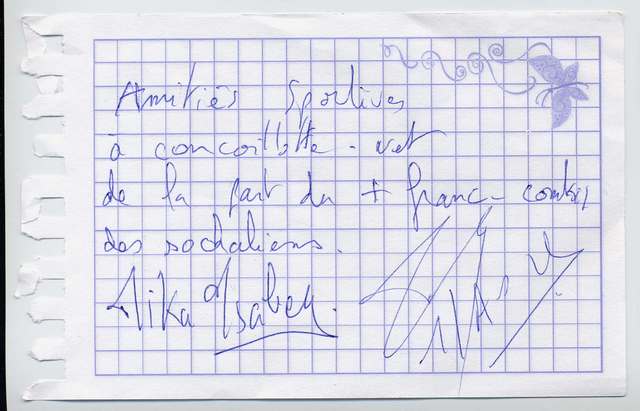 Amitiés Sportives
à concoillotte-net
de la part du + franc-comtois
des sochaliens.
Mika Isabey.